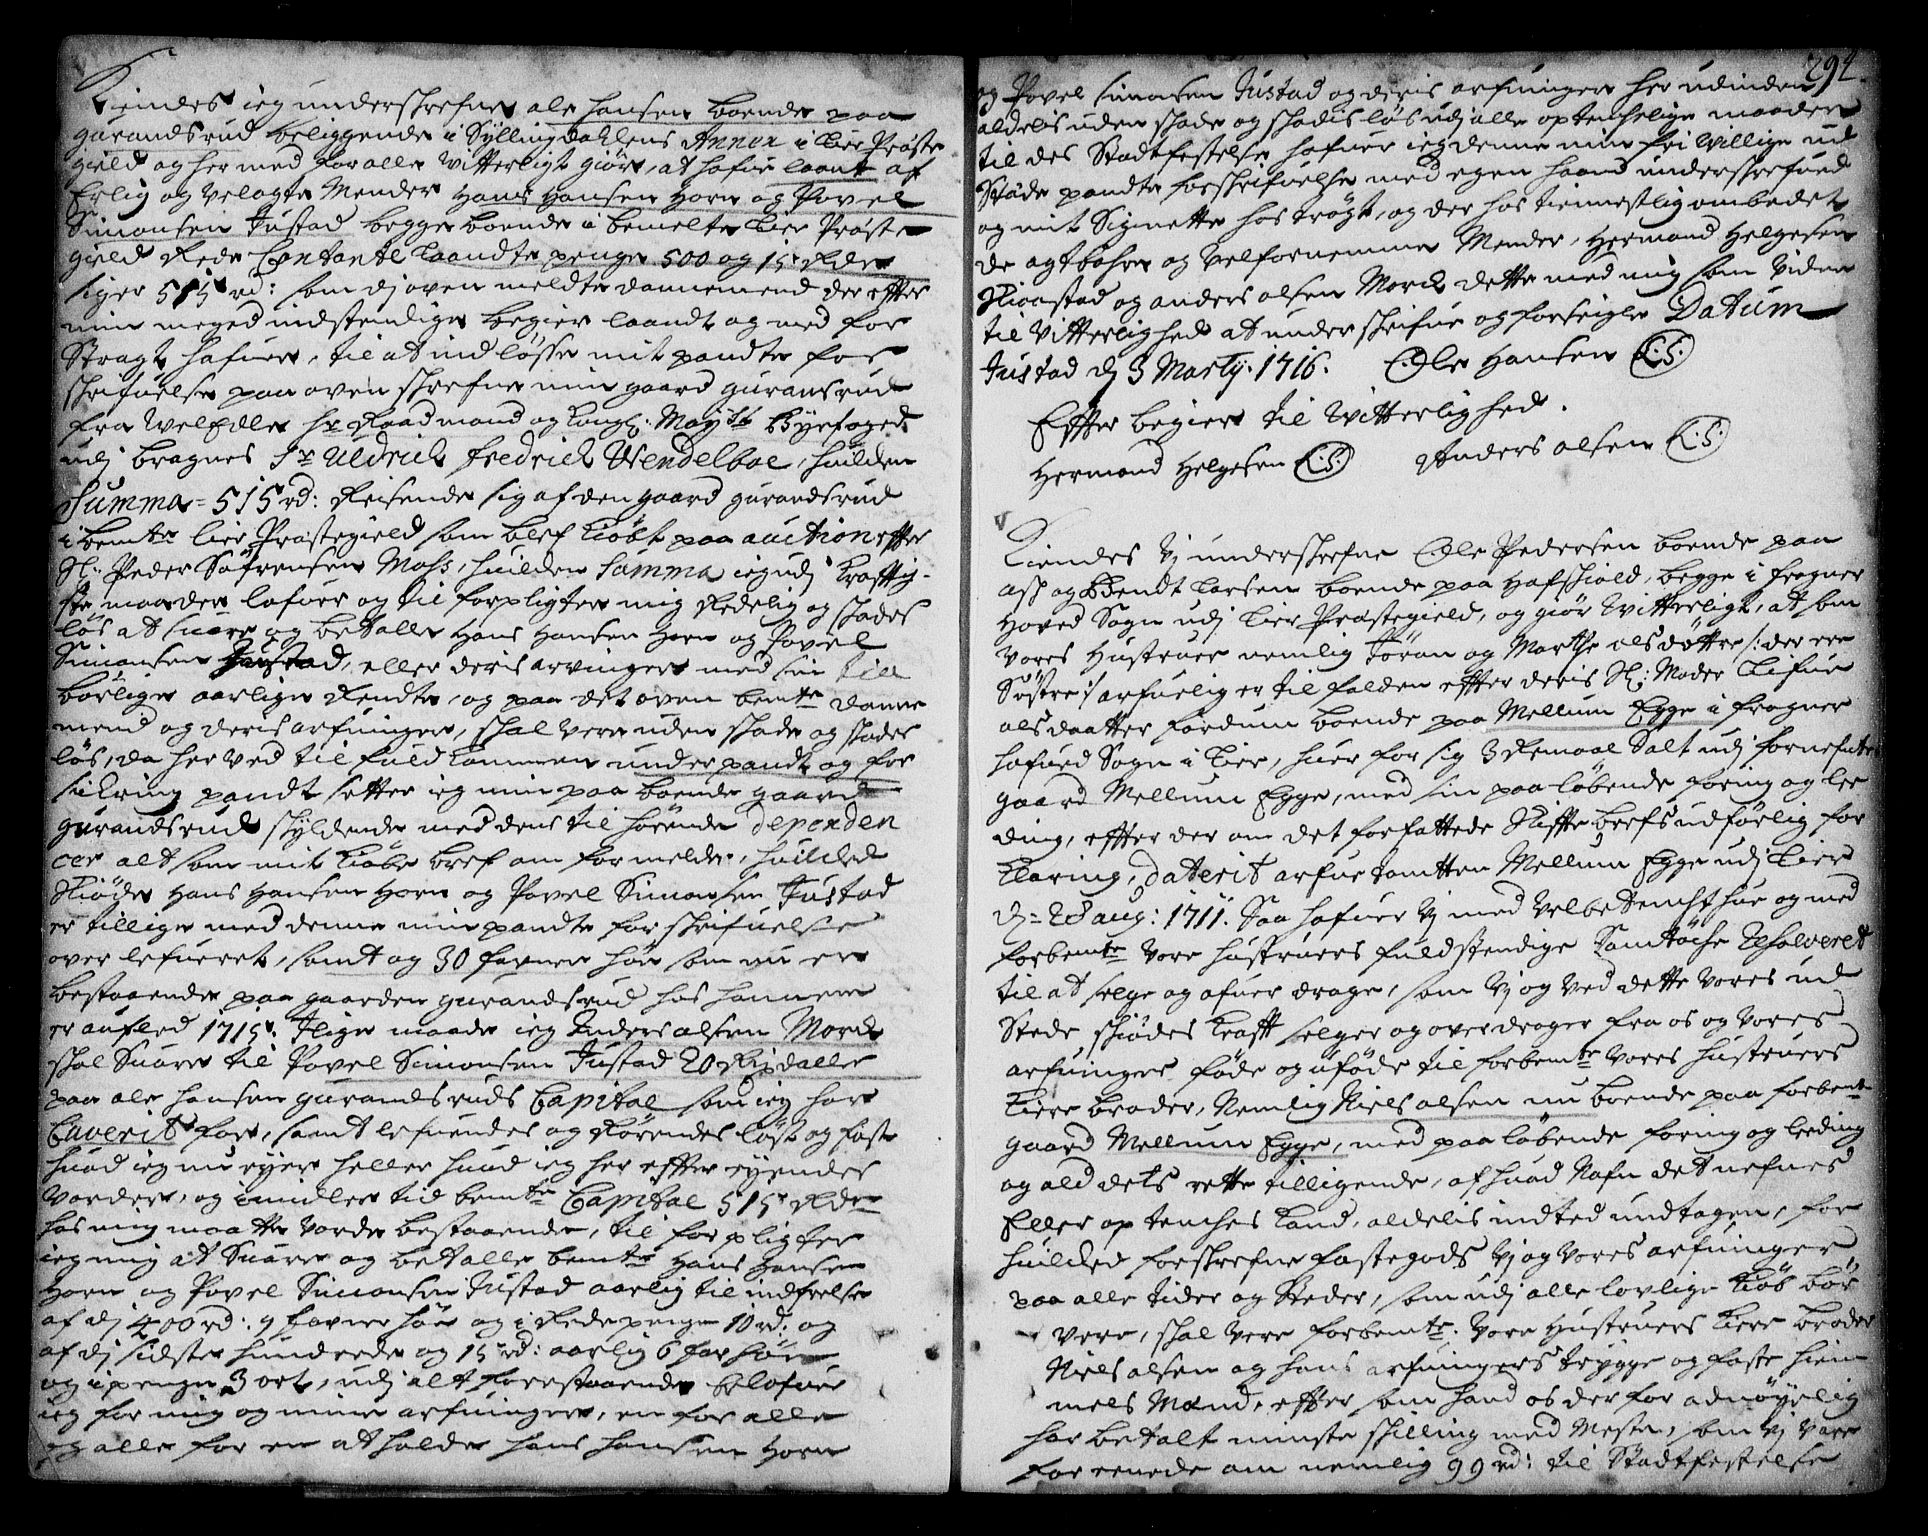 Kiendes ieg underskrefne ole hansen boende paa
gurandsrud beliggende i Syllingdahlens Annex i Lier Præste
gield og her med for alle vitterligt giør, at hafue laant af
Erlig og velagte Mender Hans Hansen Horn og Povel
Simonsen Justad begge boende i bemelte Lier Præste
gield Rede Contante Laandte penge 500 og 15 Rdr
siger 515 rd: som dj oven meldte dannemend der effter
min meged indstendige begier laandt og med for
Stragt hafuer, til at indløsse mit pandte for
skrifuelse paa oven skrefne min gaard guransrud
fra WelEdle hr Raadmand og Kongl: Mayts Byefoged
udj bragnes Sr Uldrich fredrich Wendelboe, huilden
Summa = 515 rd: Reisende sig af den gaard gurandsrud
i bemte lier Præstegield som blef Kiøbt paa auction effter
Sl: Peder Søfrensen Moss, huilden Summa ieg udj Krafftig-
ste maader lofuer og til forpligter mig Redelig og skades
løs at suare og betalle Hans Hansen Horn og Povel
Simonsen Justad, eller deris arvinger med sin till
børlige aarlige Rendte, og paa det oven bemte danne
mend og deris arfuinger, skal vere uden skade og skades
løs, da her ved til fuldkommen underpandt og for
sikring pandtsetter ieg min paa boende gaard
gurandsrud skyldende med dens til hørende dependen
cer alt som mit Kiøbe bref om formelder, huilcked
Skiøde Hans Hansen Horn og Povel Simonsen Justad
er tillige med denne min pandte forskrifuelse
over lefueret, samt og 30 favner høe som nu er
bestaaende paa gaarden gurandsrud hos hannem
er aufled 1715. Ilige maade ieg Anders olsen Morch
skal Suare til Povel Simonsen Justad 20 Rixdaller
paa ole hansen gurandsruds Capital som ieg har
Caverit for, samt lefuendes og Rørendes løst og fast
huad ieg nu eyer heller huad ieg her effter eyendes
vorder, og imidler tid bemte Capital 515 Rdr
hos mig maatte vorde bestaaende, til forpligter
ieg mig at Suare og betalle bemte Hans Hansen
Horn og Povel Simonsen Justad aarlig til indfrelse
af dj 400 rd: 9 favner høe og i Rede penge 10 rd: og
af dj sidste hundrede og 15 rd: aarlig 6 far høe
og i penge 3 ort, udj alt forestaaende belofuer
ieg for mig og mine arfuinger, en for alle
og alle for en at holde hans hansen Horn
294
og Povel Simonsen Justad og deris arfuinger her udinden
aldelis uden skade og skadisløs udj alle optenchelige maader
til des Stadtfestelse hafuer ieg denne min fri willige ud
Støde pandte forskrifuelse med egen haand underskrefued
og mit Signette hos trøgt, og der hos tiennestlig ombedet
de agtbahre og velfornemme Mender, Hermand Helgesen
Kioostad og anders olsen Morch dette med mig som viden
til vitterlighed at underskrifue og forseigle Datum
Justad dj 3 Martij. 1716. Ole Hansen (L.S.)
Effter begier til witterlighed.
Hermand Helgesen (L.S.) Anders olsen (L.S.)
Kiendes Vj underskrefne Ole Pedersen boende paa
ass og Bendt Larsen boende paa Hafskiold, begge i fragner
Hoved Sogn udj Lier Præstegield, og giør witterligt, at som
vores Hustruer nemlig Jøran og Marthe olsdøttre /: der ere
Søstre :/ arfuelig er til falden effter deris Sl: Moder
olsdaatter fordum boende paa Mellum Egge i fragner
hafued Sogn i Lier, huer for sig 3 Remaal Salt udj fornefnte
gaard Mellum Egge, med sin paa løbende foring og lee
ding, effter der om det forfattede Skiffte brefs udførlig for
klaring, daterit arfue tomtten Mellum Egge udj Lier
dj = 28 aug: 1711. Saa hafuer Vj med velbetencht hue og med
forbemte vore hustruers fuldstendige Samtøche Resolveret
til at selge og afuer drage, som Vj og ved dette vores ud
Stede skiødes Krafft selger og overdrager fra os og vores
arfuinger føde og uføde til forbemte vores hustruers
Kiere broder, Nemlig Niels olsen nu boende paa forbemte
gaard Mellum Egge, med paa løbende foring og leeding
og ald dets rette tilligende, af huad Nafn det nefnes
Eller optenches kand, aldelis indted undtagen, for
huilcked forskrefne fastegods Vj og vores arfuinger
paa alle tider og Steder, som udj alle lovlige Kiøb bør
vere, skal vere forbemte vore Hustruers Kiere broder
Niels olsen og hans arfuingers trygge og faste hiem
mels Mænd, effter som hand os der for adnøyelig
har betalt minste skilling med Meste, som Vj vare
foreenede om nemlig 99 rd: til Stadtfestelse